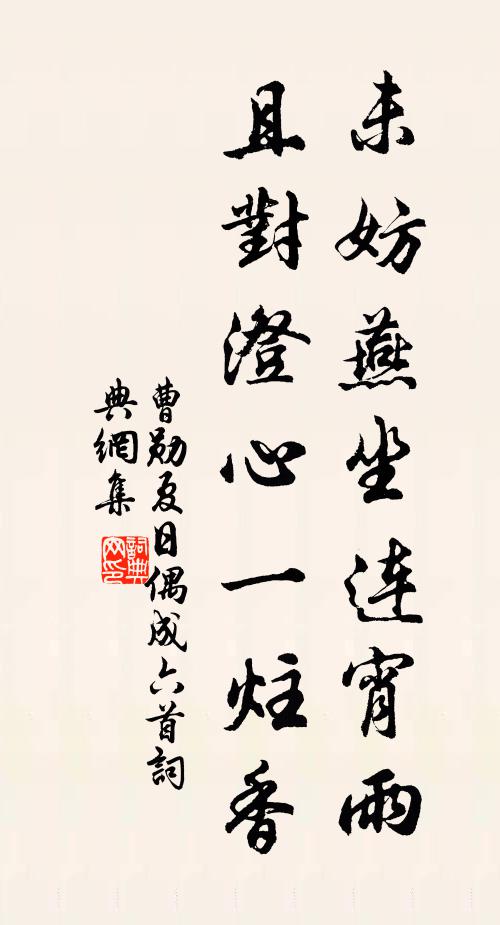 未妨燕坐连宵雨
且對澄心一炷香
曹勛夏日偶成六首詞
典網集
詞典网印